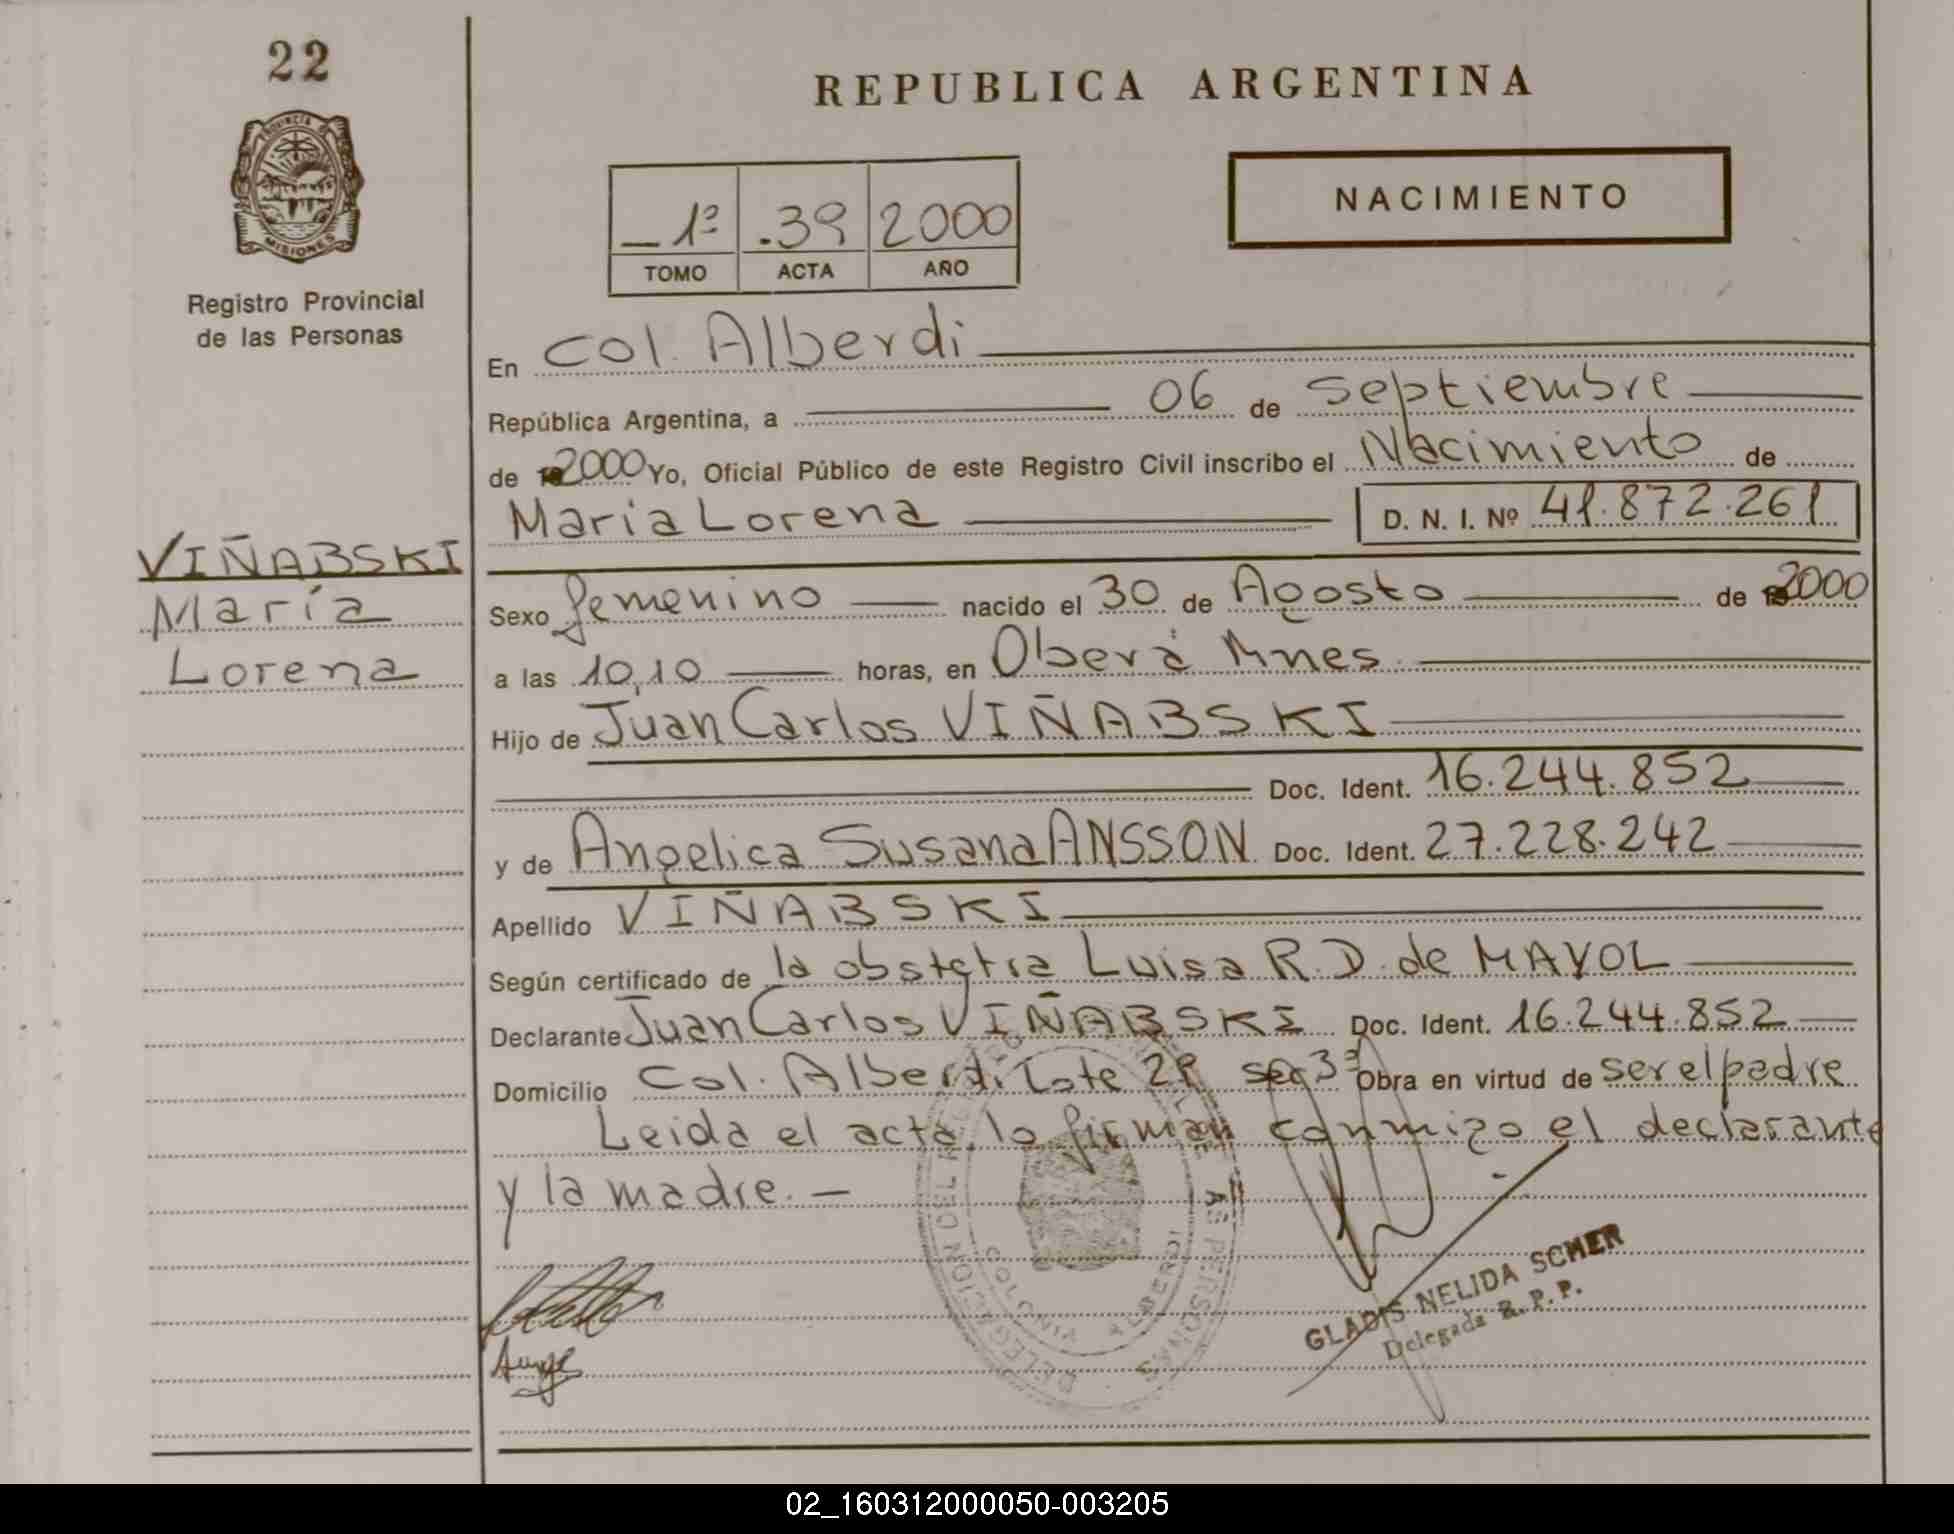 22
PROVINCIA DE
MISIONES
Registro Provincial
de las Personas
VIÑABSKI
María
Lorena
REPUBLICA ARGENTINA
NACIMIENTO
1º .39 2000
TOMO ACTA AÑO
En Col. Alberdi
República Argentina, a 06 de septiembre
de 2000 Yo, Oficial Público de este Registro Civil inscribo el Nacimiento de
Maria Lorena D. N. I. Nº 41.872.261
Sexo femenino nacido el 30 de Agosto de 2000
a las 10,10 horas, en Oberá Mnes.
Hijo de Juan Carlos VIÑABSKI
Doc. Ident. 16.244.852
y de Angelica Susana ANSSON Doc. Ident. 27.228.242
Apellido VIÑABSKI
Según certificado de la obstetra Luisa R. D. de MAYOL
Declarante Juan Carlos VIÑABSKI Doc. Ident. 16.244.852
Domicilio Col. Alberdi Lote sec 3ª Obra en virtud de ser el padre
Leida el acta, lo firman conmigo el declarante
y la madre. —
DELEGACION DEL REGISTRO DE LAS PERSONAS
COLONIA ALBERDI
GLADIS NELIDA SCHER
Delegada R. P. P.
02_160312000050-003205